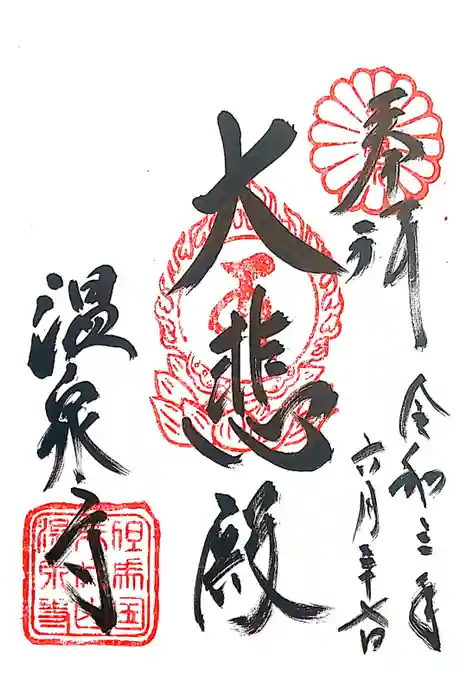 奉拝
令和三年
六月二十七日
大悲殿
温泉寺
但馬国
末代山
温泉寺